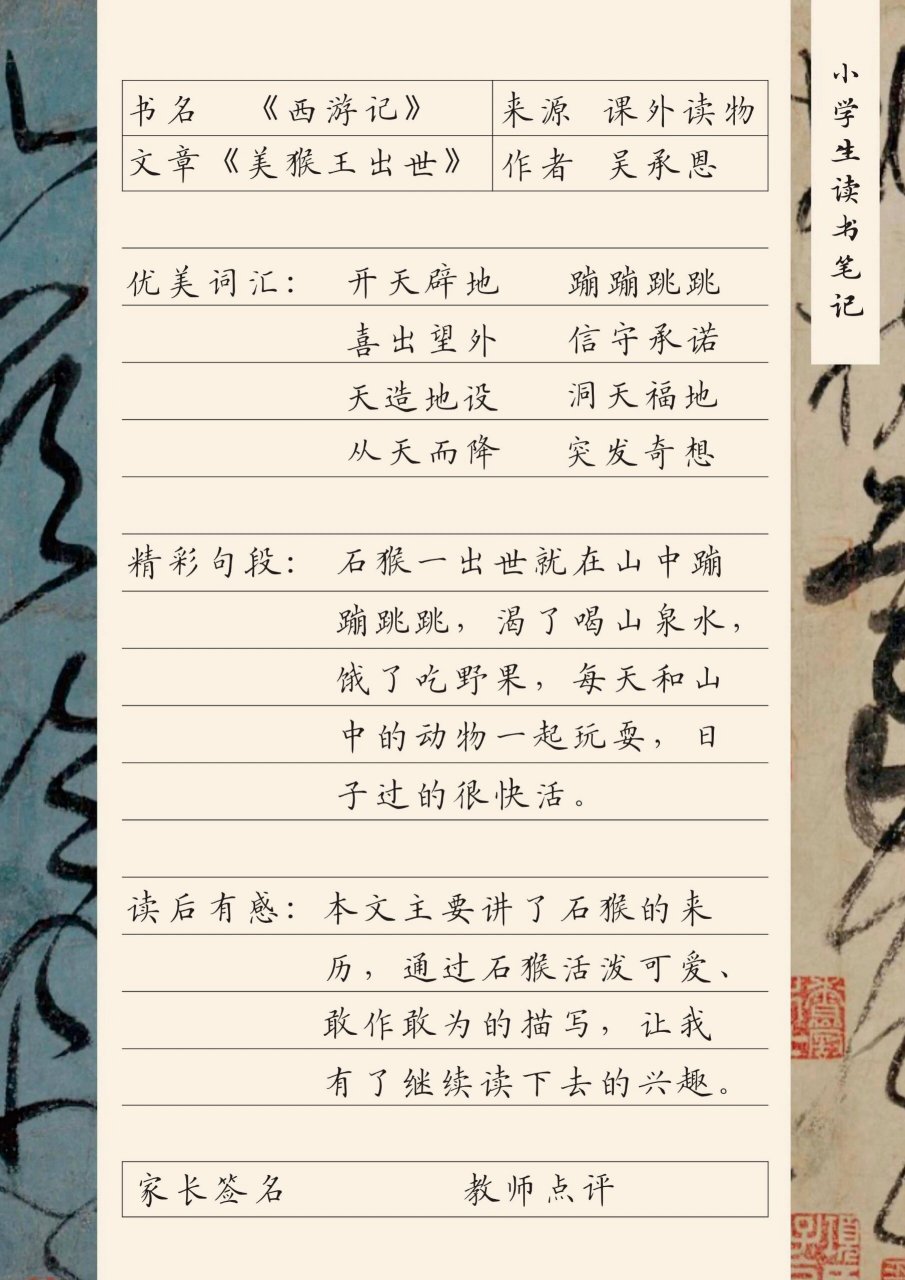 小学生读书笔记
书名 《西游记》 来源 课外读物
文章《美猴王出世》 作者 吴承恩
优美词汇: 开天辟地 蹦蹦跳跳
喜出望外 信守承诺
天造地设 洞天福地
从天而降 突发奇想
精彩句段: 石猴一出世就在山中蹦
蹦跳跳，渴了喝山泉水，
饿了吃野果，每天和山
中的动物一起玩耍，日
子过的很快活。
读后有感: 本文主要讲了石猴的来
历，通过石猴活泼可爱、
敢作敢为的描写，让我
有了继续读下去的兴趣。
家长签名 教师点评